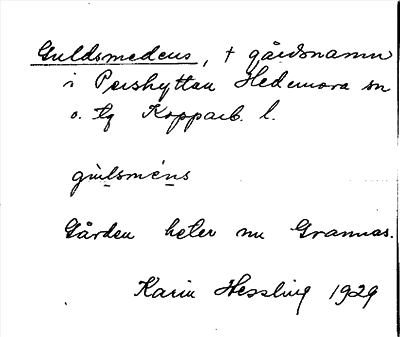 Guldsmedens, † gårdsnamn
i Pershyttan Hedemora sn
o. tg Kopparb. l.
gùlsméns
Gården heter nu Grannas.
Karin Hessling 1929